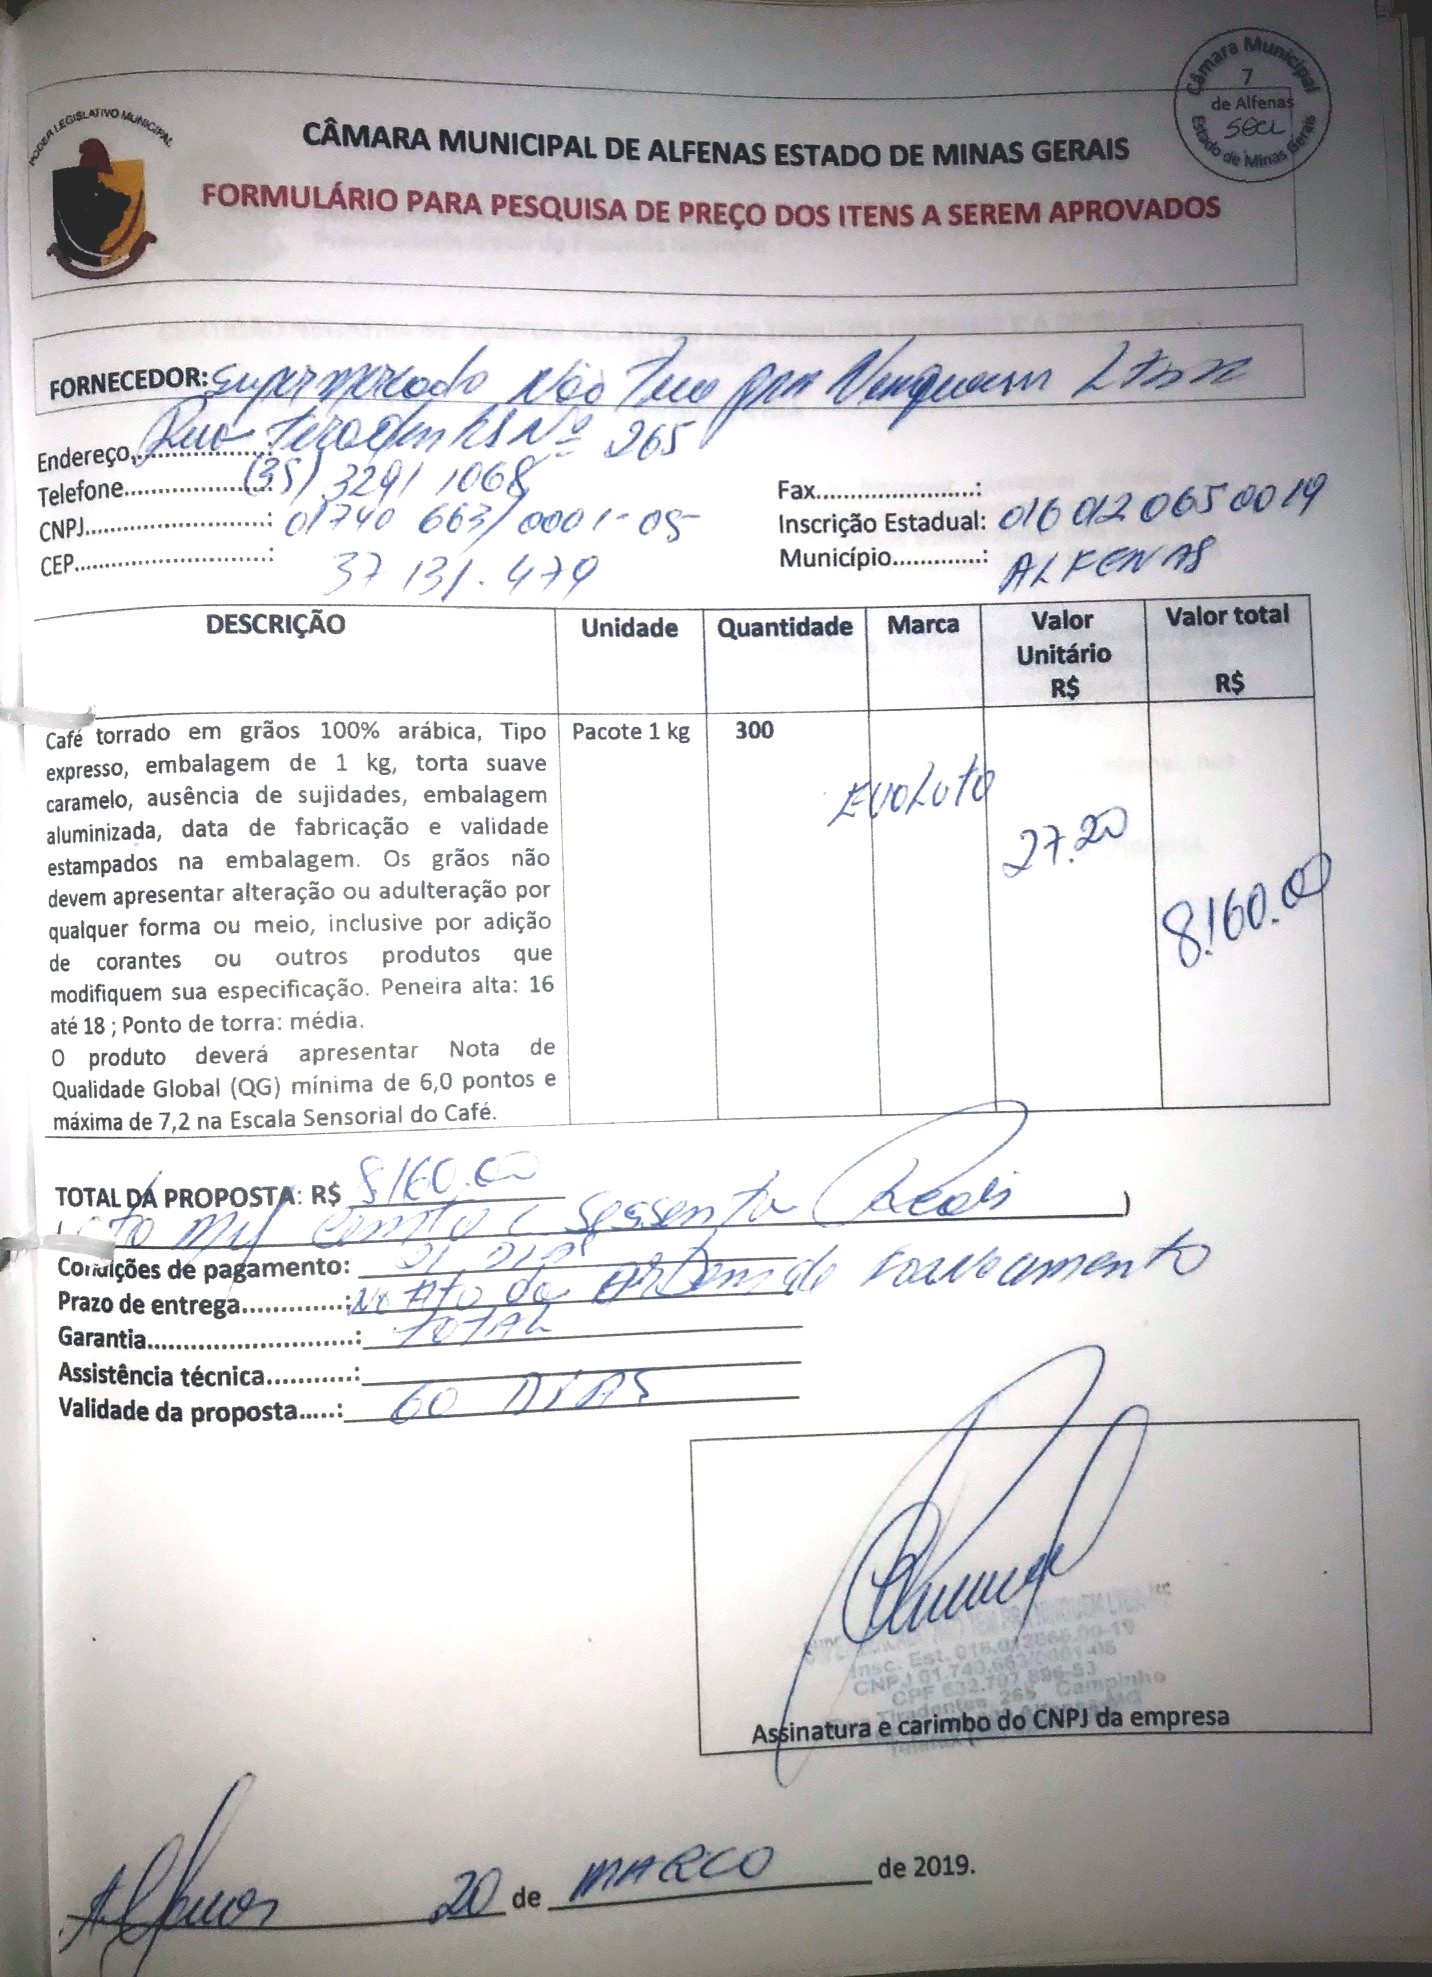 PODER LEGISLATIVO MUNICIPAL
Câmara Municipal
7
de Alfenas
Estado de Minas Gerais
CÂMARA MUNICIPAL DE ALFENAS ESTADO DE MINAS GERAIS
FORMULÁRIO PARA PESQUISA DE PREÇO DOS ITENS A SEREM APROVADOS
FORNECEDOR: Supermercado Não Tem pra Ninguem Ltda
Endereço................: Rua Tiradentes Nº 265
Telefone....................: (35) 3291 1068
Fax.......................:
CNPJ.........................: 01740 663/0001-05
Inscrição Estadual: 016012065 0019
CEP...........................: 37 131.479
Município............: ALFENAS
DESCRIÇÃO Unidade Quantidade Marca Valor Unitário R$ Valor total R$
Café torrado em grãos 100% arábica, Tipo Pacote 1 kg 300
expresso, embalagem de 1 kg, torta suave
caramelo, ausência de sujidades, embalagem EVOLUTO
aluminizada, data de fabricação e validade 27.20
estampados na embalagem. Os grãos não
devem apresentar alteração ou adulteração por 8.160.00
qualquer forma ou meio, inclusive por adição
de corantes ou outros produtos que
modifiquem sua especificação. Peneira alta: 16
até 18 ; Ponto de torra: média.
O produto deverá apresentar Nota de
Qualidade Global (QG) mínima de 6,0 pontos e
máxima de 7,2 na Escala Sensorial do Café.
TOTAL DA PROPOSTA: R$ 8160.00
(oito mil cento e sessenta Reais)
Condições de pagamento:
Prazo de entrega.............: No Ato da Ordem de Fornecimento
Garantia..........................: TOTAL
Assistência técnica...........:
Validade da proposta.....: 60 DIAS
Insc. Est. 016.012065.00-19
CNPJ 01.740.663/0001-05
Rua Tiradentes, 265 Campinho
Assinatura e carimbo do CNPJ da empresa
Alfenas 20 de MARCO de 2019.